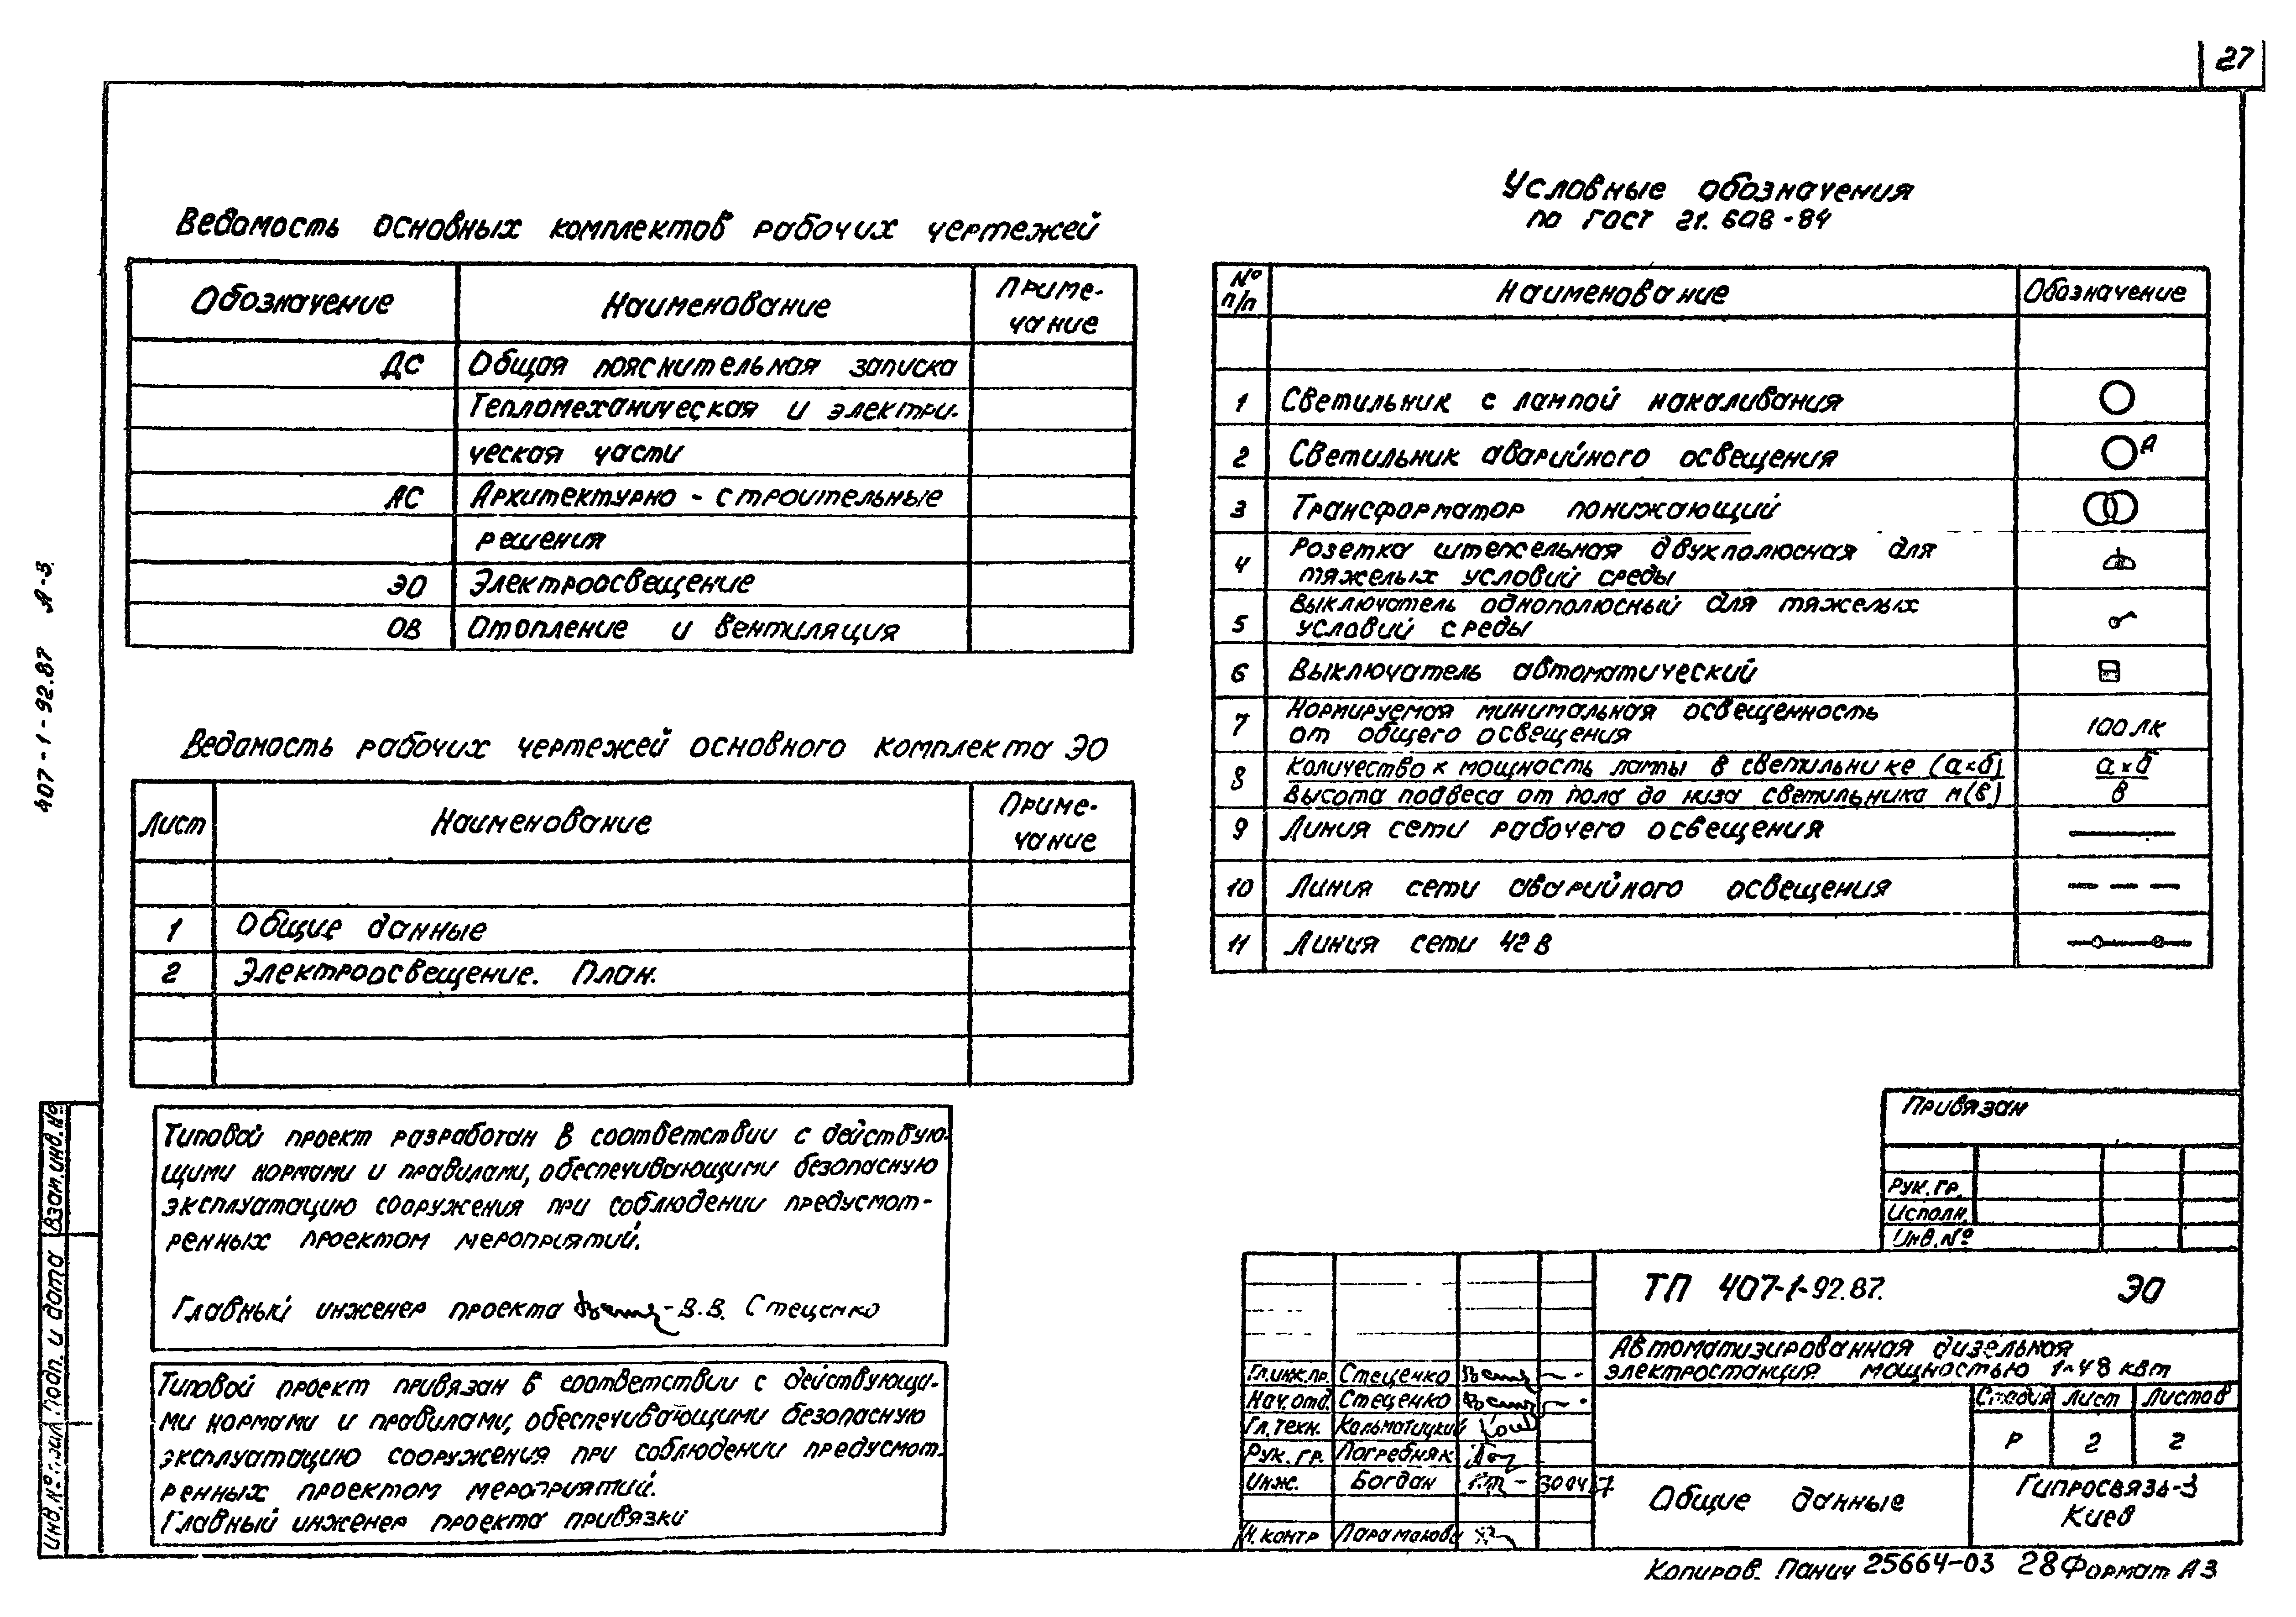 27
Ведомость основных комплектов рабочих чертежей
Обозначение Наименование Приме-
чание
ДС Общая пояснительная записка
Тепломеханическая и электри-
ческая части
АС Архитектурно - строительные
решения
ЭО Электроосвещение
ОВ Отопление и вентиляция
Ведомость рабочих чертежей основного комплекта ЭО
Лист Наименование Приме-
чание
1 Общие данные
2 Электроосвещение. План.
Типовой проект разработан в соответствии с действую-
щими нормами и правилами, обеспечивающими безопасную
эксплуатацию сооружения при соблюдении предусмот-
ренных проектом мероприятий.
Главный инженер проекта В.В. Стеценко
Типовой проект привязан в соответствии с действующи-
ми нормами и правилами, обеспечивающими безопасную
эксплуатацию сооружения при соблюдении предусмот-
ренных проектом мероприятий.
Главный инженер проекта привязки
Условные обозначения
по ГОСТ 21.608-84
№
п/п Наименование Обозначение
1 Светильник с лампой накаливания
2 Светильник аварийного освещения А
3 Трансформатор понижающий
4 Розетка штепсельная двухполюсная для
тяжелых условий среды
5 Выключатель однополюсный для тяжелых
условий среды
6 Выключатель автоматический
7 Нормируемая минимальная освещенность
от общего освещения 100 лк
8 Количество х мощность лампы в светильнике (а×б) а×б
Высота подвеса от пола до низа светильника м(в) в
9 Линия сети рабочего освещения
10 Линия сети аварийного освещения
11 Линия сети 42 в
Привязан
Рук.гр.
Исполн.
Инв.№
ТП 407-1-92.87. ЭО
Автоматизированная дизельная
электростанция мощностью 1×48 квт
Гл.инж.пр. Стеценко
Нач.отд. Стеценко
Гл.техн. Кальматицкий
Рук. гр. Погребняк
Инж. Богдан
Н.контр
Стадия Лист Листов
Р 2 2
Общие данные
Гипросвязь-3
Киев
Копиров. Панич 25664-03 28 Формат А3
407-1-92.87 А-3.
Взап.инв.№
Подп. и дата
Инв.№ подл.